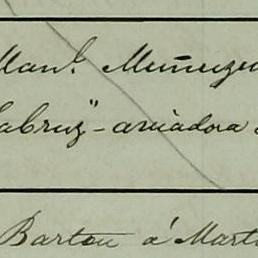 Man.l Muñuzu
Cabruz"- aviadora
Barton á Mart